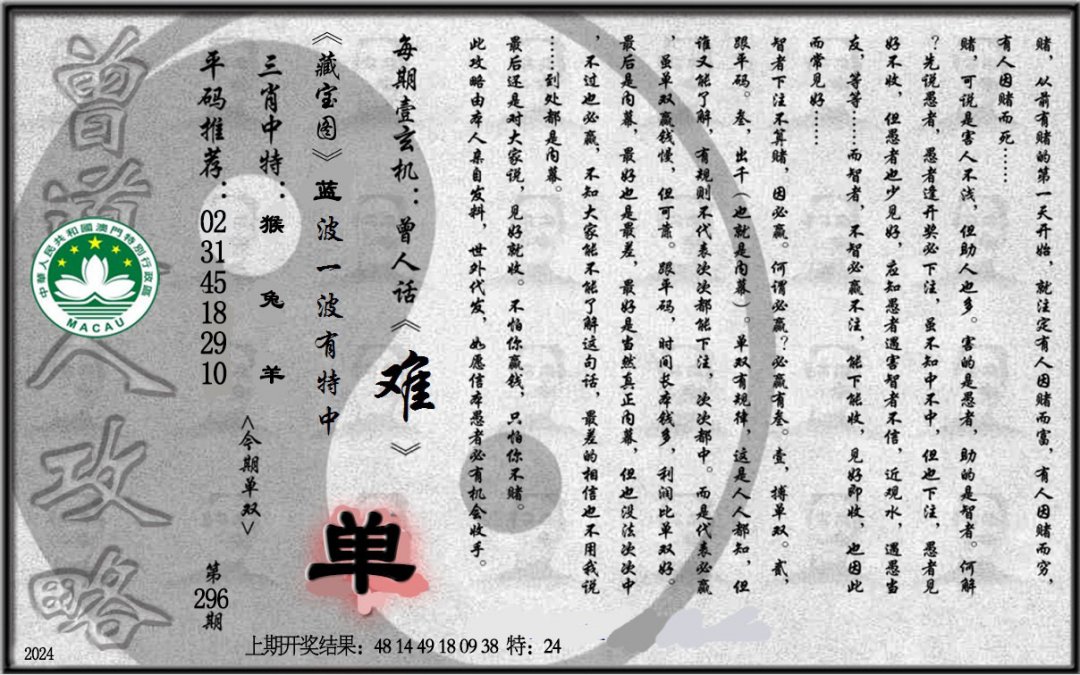 赌，从前有赌的第一天开始，就注定有人因赌而富，有人因赌而穷，
有人因赌而死……
赌，可说是害人不浅，但助人也多。害的是愚者，助的是智者。何解
？先说愚者，愚者逢开奖必下注，虽不知中不中，但也下注，愚者见
好不收，但愚者也少见好，应知愚者遇害智者不信，近观水，遇愚当
友，等等……而智者，不智必赢不注，能下能收，见好即收，也因此
而常见好……
智者下注不算赌，因必赢。何谓必赢？必赢有叁。壹，搏单双。贰，
跟平码。叁，出千（也就是内幕）。单双有规律，这是人人都知，但
谁又能了解，有规则不代表次次都能下注，次次都中。而是代表必赢
，虽单双赢钱慢，但可靠。跟平码，时间长本钱多，利润比单双好。
最后是内幕，最好也是最差，最好是当然真正内幕，但也没法次次中
，不过也必赢，不知大家能不能了解这句话，最差的相信也不用我说
……到处都是内幕。
最后还是对大家说，见好就收。不怕你赢钱，只怕你不赌。
此攻略由本人亲自发料，世外代发，如愿信本愚者必有机会收手。
每期壹玄机：曾人话《难》
《藏宝图》蓝波一波有特中
单
三肖中特：猴 兔 羊
<今期单双>
平码推荐：02 31 45 18 29 10
第296期
曾道人攻略
中華人民共和國澳門特別行政區
MACAU
2024
上期开奖结果：48 14 49 18 09 38 特：24